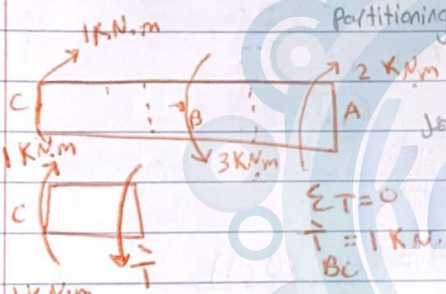 partitioning
1 KN.m
2 KN.m
C
B
A
1 KN.m
3 KN.m
C
ΣT=0
T = 1 KN.
T
BC